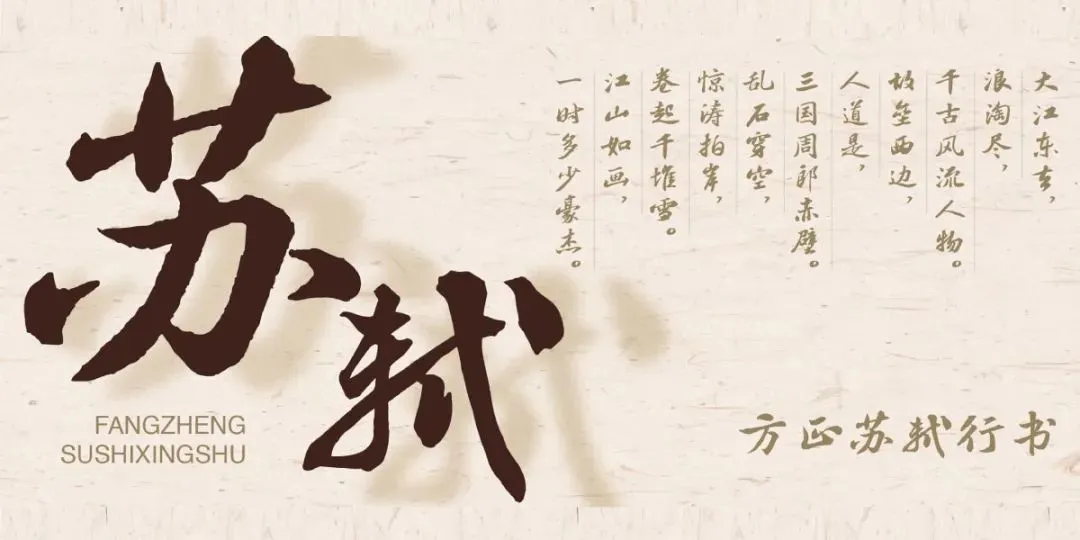 苏轼
FANGZHENG
SUSHIXINGSHU
大江东去，
浪淘尽，
千古风流人物。
故垒西边，
人道是，
三国周郎赤壁。
乱石穿空，
惊涛拍岸，
卷起千堆雪。
江山如画，
一时多少豪杰。
方正苏轼行书